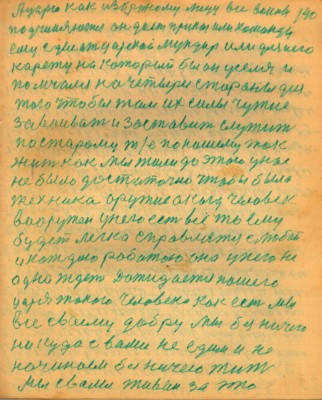 Лугро как избраному лицу все воисов 140
подчиняются он даст приказ или команду
ему сдиват дарской мундир или длиного
карету на который бы он уселя и
помчался на четыре стараны для
того чтобы там их силы чужие
заваеват и заставит служит
постарому т/е по нашему так
жит как мы жили до этого у нас
не было достаточно чтобы была
техника оружие а когд человек
вооружен у него ест все то ему
будет легка справлятся с любой
и каждою работою она у него не
одна ждет дожидается нашего
царя такого человека как ест мы
все своему добру мы бы ничего
никуда с вами не едим и не
начинаем бы ничего жит
мы с вами живем за это